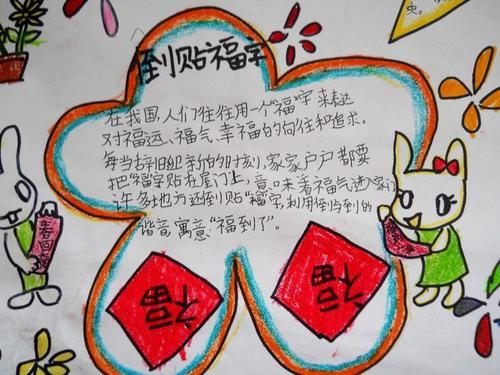 倒贴福字
在我国,人们往往用一个“福”字来表达
对福运、福气、幸福的向往和追求。
每当辞旧迎新的时刻,家家户户都要
把“福”字贴在屋门上,意味着福气进入家门
许多地方还倒贴“福”字,利用倒与到的
谐音,寓意“福到了”。
福
福
春回